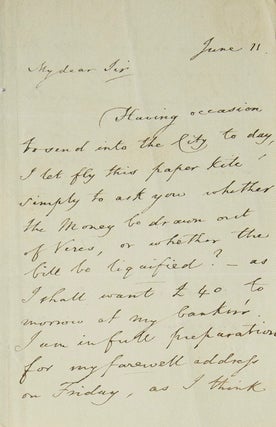 June 11.
My dear Sir
Having occasion
to send into the City to day,
I let fly this paper kite
simply to ask you whether
the Money be drawn out
of Veres, or whether the
bill be liquified? – as
I shall want £40 to
morrow at my bankers.
I am in full preparation
for my farewell address
on Friday, as I think